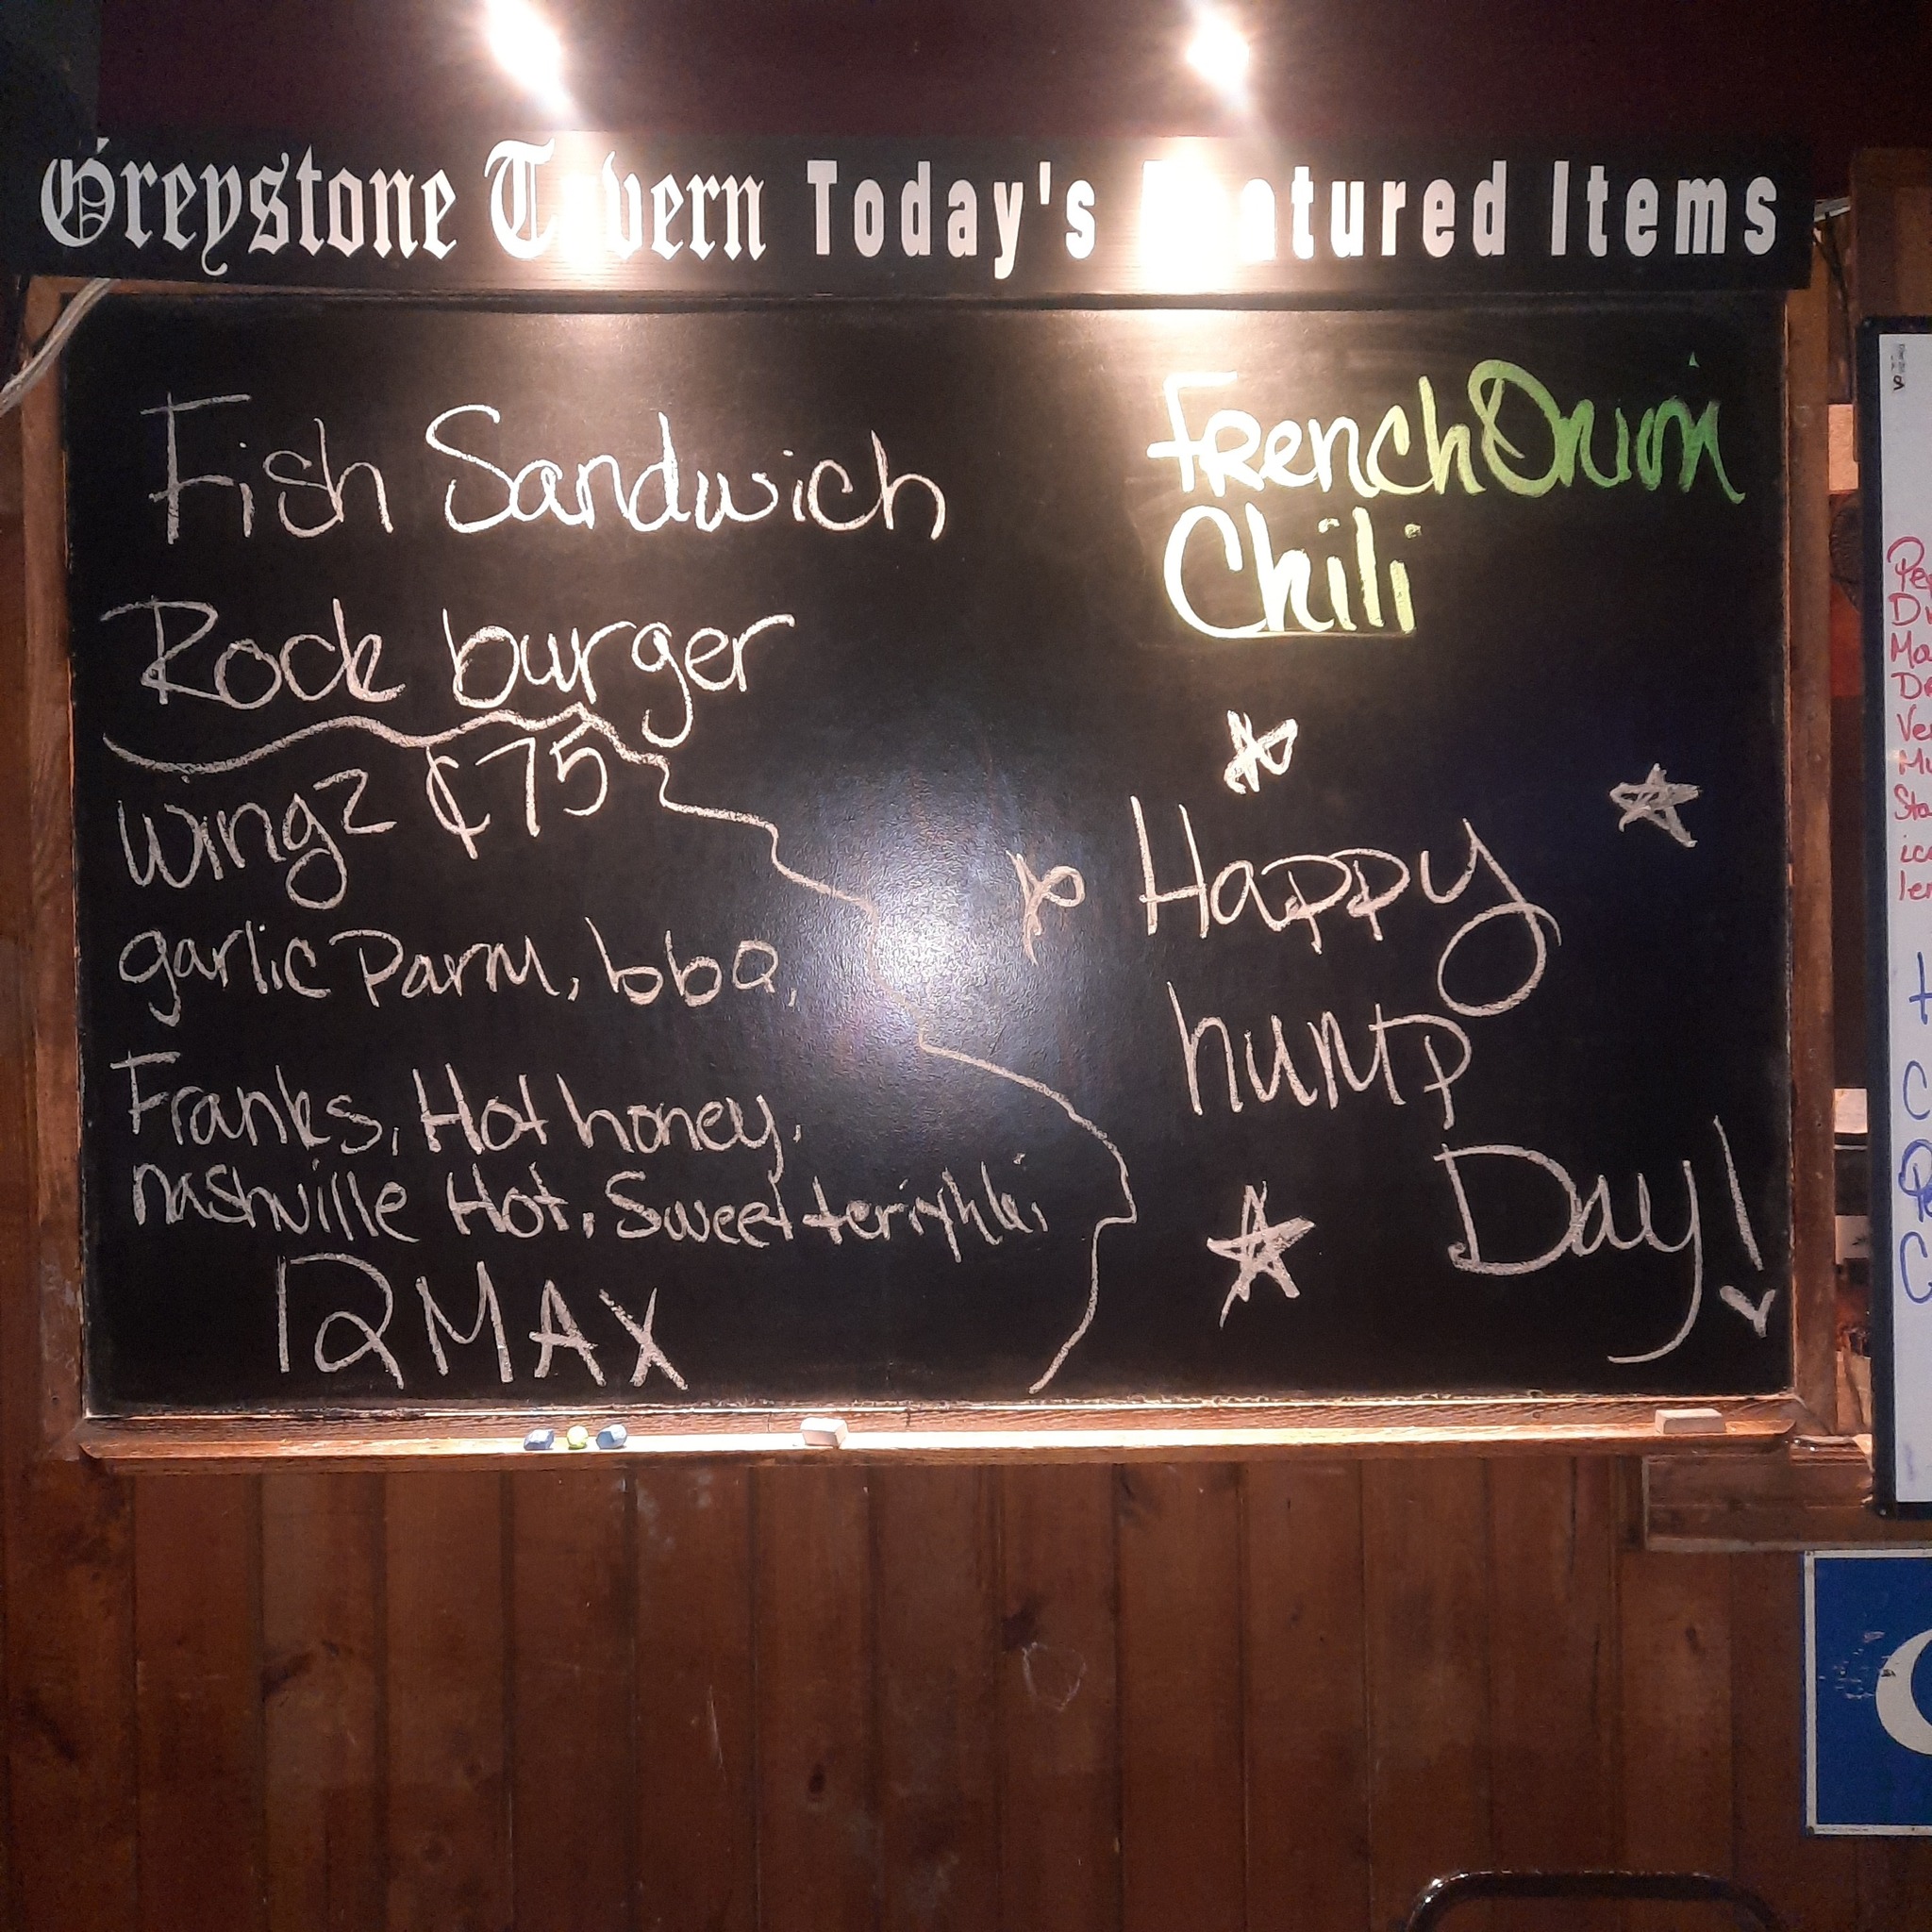 Greystone Tavern Today's Featured Items
Fish Sandwich
Rock burger
Wingz ¢75
garlic Parm, bbQ,
Franks, Hot honey,
nashville Hot, Sweet teriykki,
12 MAX
French Onion
Chili
Happy
hump
Day!